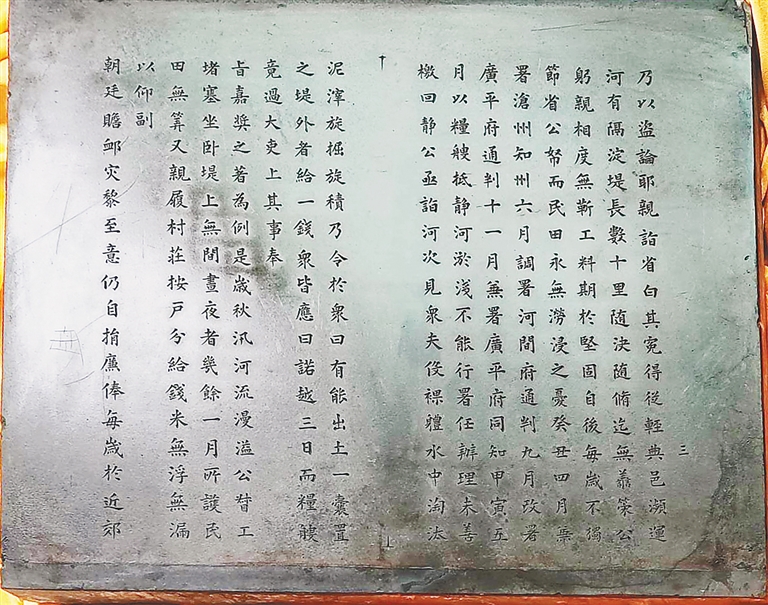 三
乃以盜論耶親詣省白其冤得從輕典邑瀕運
河有隔淀堤長數十里隨決隨脩迄無善策公
躬親相度無靳工料期於堅固自後每歲不獨
節省公帑而民田永無澇浸之憂癸丑四月兼
署滄州知州六月調署河間府通判九月改署
廣平府通判十一月兼署廣平府同知甲寅五
月以糧艘抵静河淤淺不能行署任辦理未善
檄回静公亟詣河次見衆夫伇裸軆水中淘汰
泥滓旋掘旋積乃令於衆曰有能出土一囊置
之堤外者給一錢衆皆應曰諾越三日而糧艘
竟過大吏上其事奉
旨嘉奬之著為例是歲秋汛河流漫溢公督工
堵塞坐卧堤上無間晝夜者幾餘一月所護民
田無筭又親履村莊按戶分給錢米無浮無漏
以仰副
朝廷瞻卹灾黎至意仍自捐廉俸每歲於近郊